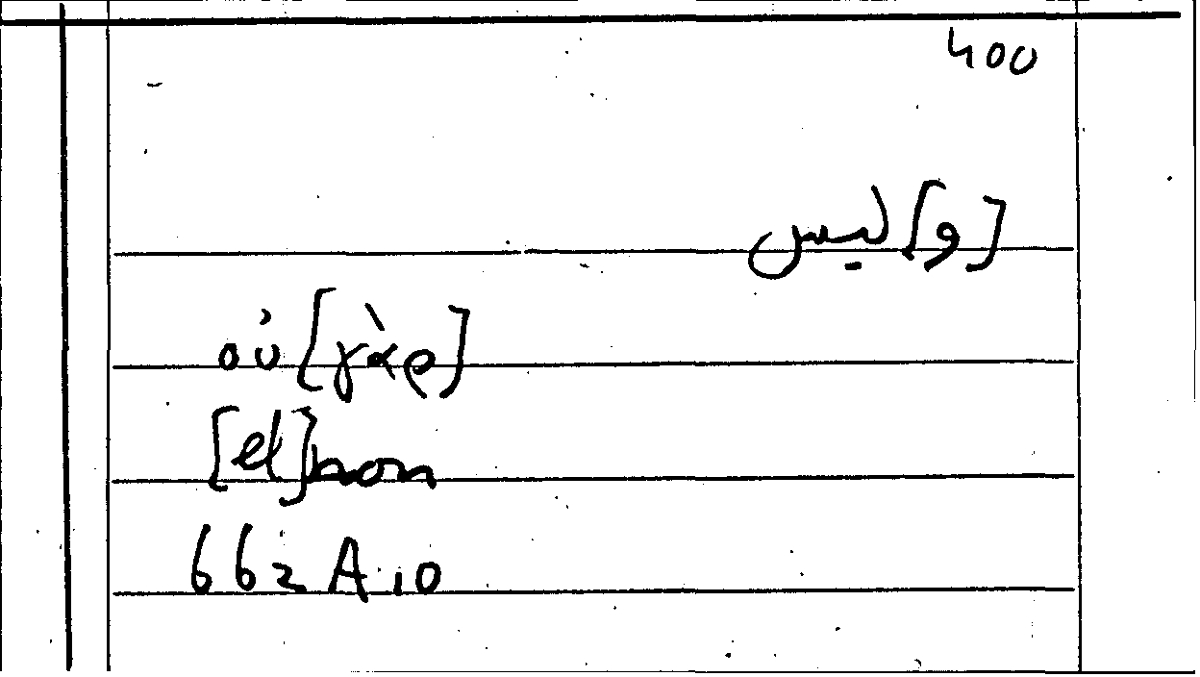 400
[و] ليس
οὐ [γὰρ]
[et] non
662 A 10